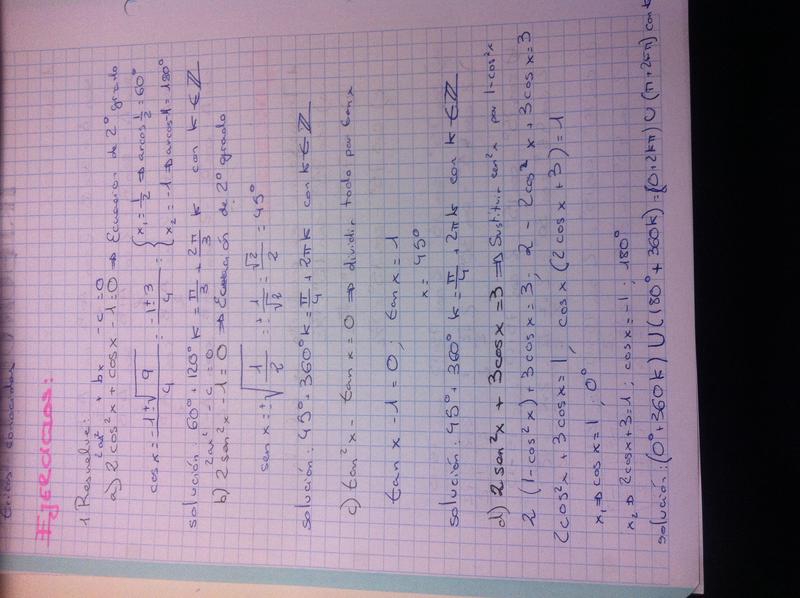 tricas conocidas
Ejercicios:
1. Resuelve:
2ax² + bx - c = 0
a) 2cos²x + cosx - 1 = 0 ⇒ Ecuación de 2º grado
cosx = -1±√9 / 4 = -1±3 / 4 = { x₁ = 1/2 ⇒ arcos 1/2 = 60º
x₂ = -1 ⇒ arcos -1 = 180º
solución: 60º + 120º k = π/3 + 2π/3 k con k ∈ ℤ
2ax² - c = 0
b) 2sen²x - 1 = 0 ⇒ Ecuación de 2º grado
senx = ±√1/2 = ± 1/√2 = √2/2 = 45º
solución: 45º + 360º k = π/4 + 2πk con k ∈ ℤ
c) tan²x - tanx = 0 ⇒ dividir todo por tanx
tanx - 1 = 0 ; tanx = 1
x = 45º
solución: 45º + 360º k = π/4 + 2πk con k ∈ ℤ
d) 2sen²x + 3cosx = 3 ⇒ Sustituir sen²x por 1-cos²x
2 (1-cos²x) + 3cosx = 3 ; 2 - 2cos²x + 3cosx = 3
2cos²x + 3cosx = 1 , cosx (2cosx + 3) = 1
x₁ ⇒ cosx = 1 ; 0º
x₂ ⇒ 2cosx + 3 = 1 ; cosx = -1 ; 180º
solución: (0º + 360k) U (180º + 360k) = (0 + 2kπ) U (π + 2kπ) con k